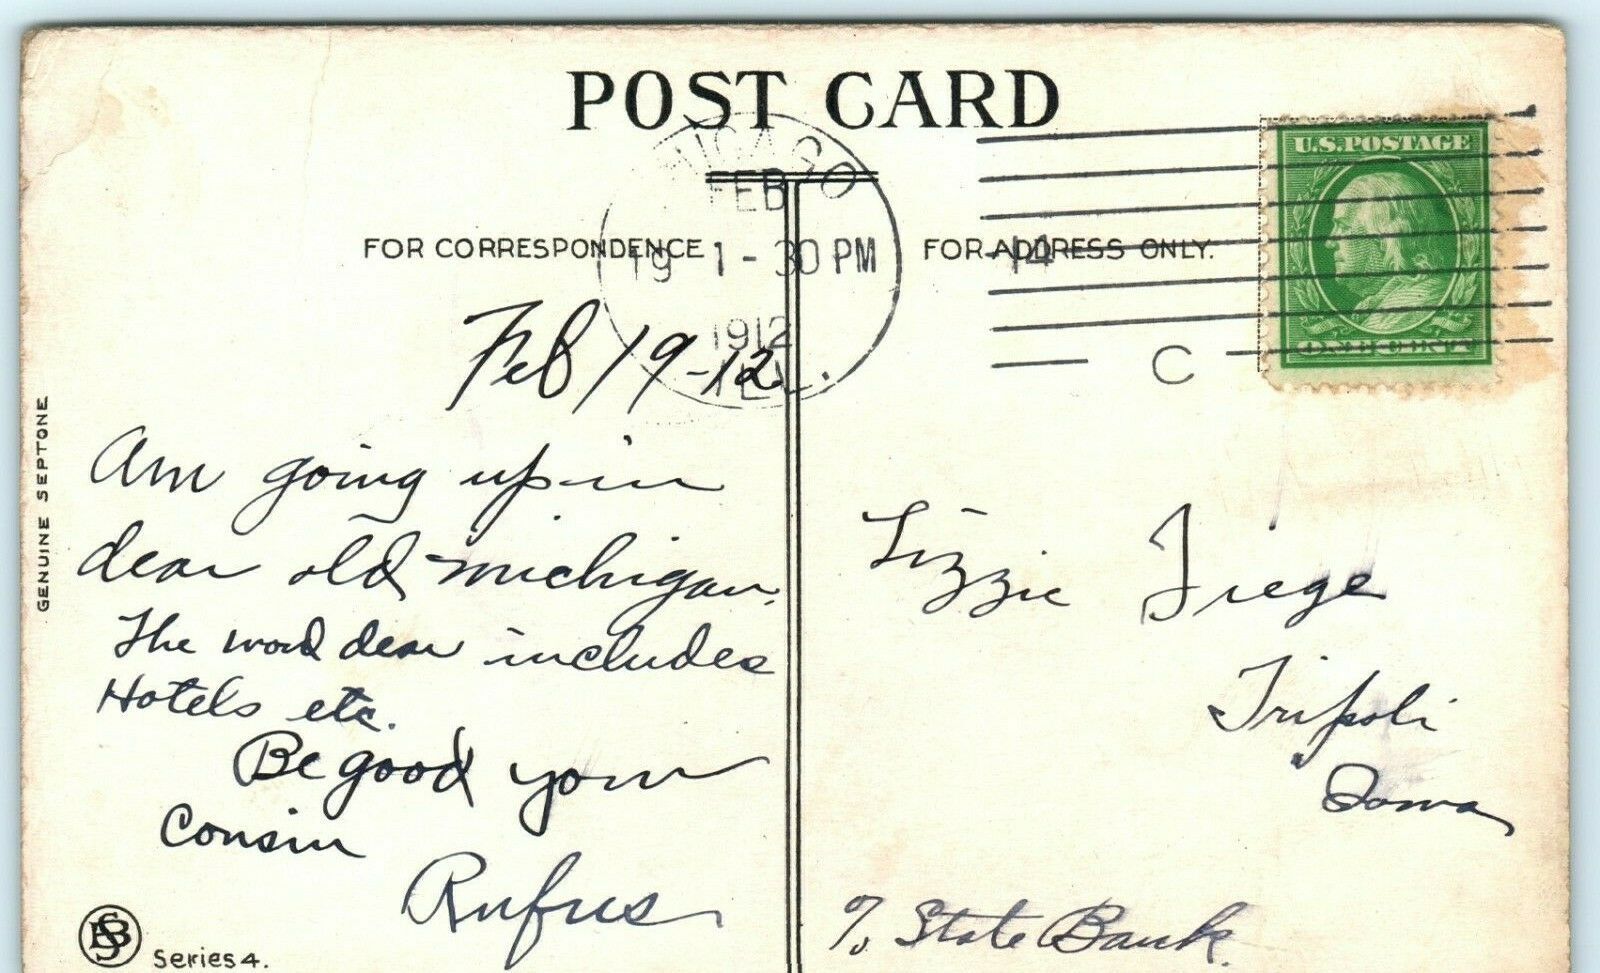 POST CARD
CHICAGO
FEB
19 1-30 PM
1912
ILL.
14
C
U.S.POSTAGE
ONE CENT
FOR CORRESPONDENCE
FOR ADDRESS ONLY.
GENUINE SEPTONE
Feb 19-12
Am going up in
dear old michigan.
The word dear includes
Hotels etc.
Be good your
Cousin
Rufus
Series 4.
Lizzie Fiege
Tripoli
Iowa
% State Bank.